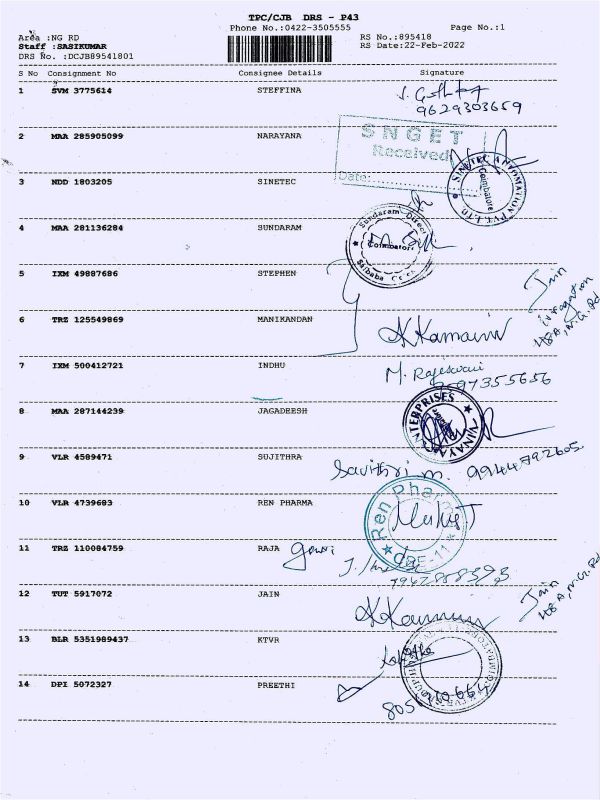 TPC/CJB DRS - P43
Phone No.:0422-3505555 Page No.:1
Area :NG RD RS No.:895418
Staff :SASIKUMAR RS Date:22-Feb-2022
DRS No. :DCJB89541801
S No Consignment No Consignee Details Signature
1 SVM 3775614 STEFFINA
9629303659
2 MAA 285905099 NARAYANA
SNGET
Received
Date:
3 NDD 1803205 SINETEC
SINETEC AUTOMATION PVT. LTD
Coimbatore
4 MAA 281136284 SUNDARAM
Sundaram Direct
Coimbatore
Saibaba
5 IXM 49887686 STEPHEN
Jain
Irrigation
48A, N.G. Rd
6 TRZ 125549869 MANIKANDAN
7 IXM 500412721 INDHU
M. Rajeswari
97355656
8 MAA 287144239 JAGADEESH
VINAYAK ENTERPRISES
9 VLR 4589471 SUJITHRA
Savithri m. 9944792605
10 VLR 4739683 REN PHARMA
Ren Pharma
CBE-11
11 TRZ 110084759 RAJA
Gowri
12 TUT 5917072 JAIN
Jain
48A, N.G. Rd
13 BLR 5351989437 KTVR
14 DPI 5072327 PREETHI